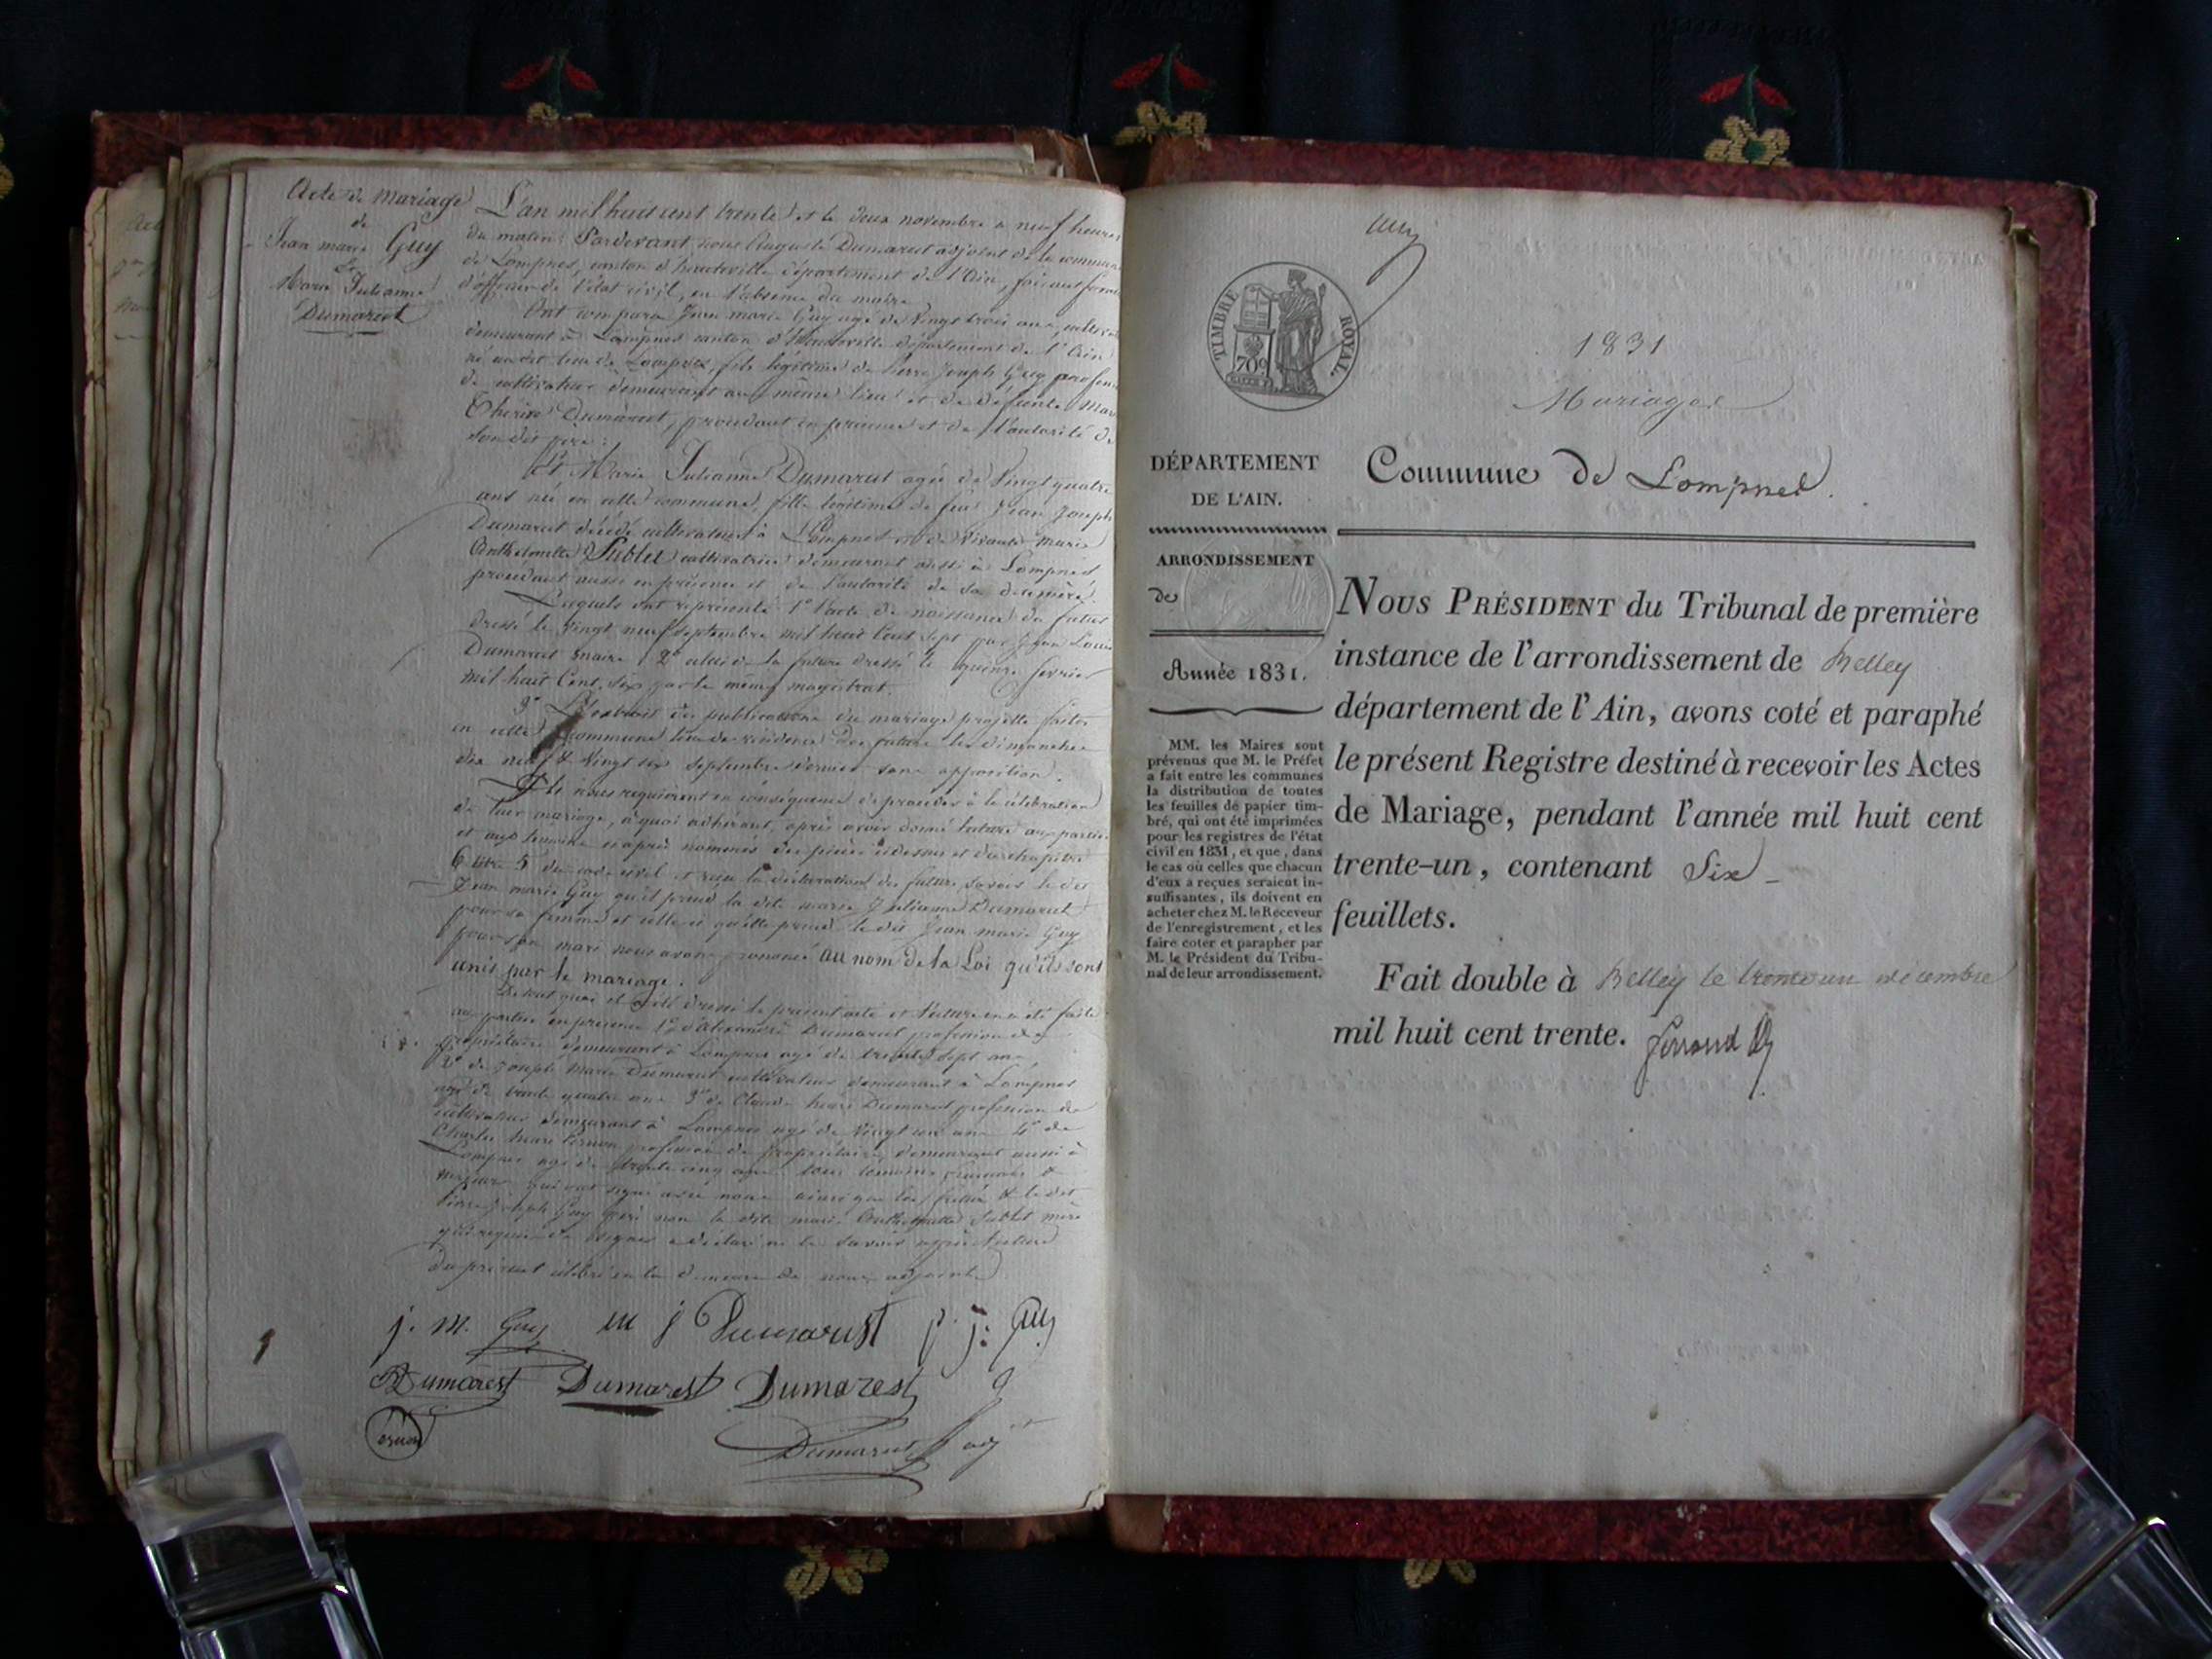 Acte de mariage
de
Jean marie Guy
&
Marie Julianne
Dumarest
L'an mil huit cent trente et le deux novembre a neuf heures
du matin Pardevant nous Auguste Dumarest adjoint de la commune
de Lompnes, canton d'hauteville département de l'Ain, faisant
d'officier de l'état civil, en l'absence du maire
Ont comparu Jean marie Guy agé de vingt trois ans,
demeurant à Lompnes canton d'hauteville département de l'Ain
né au dit lieu de Lompnes, fils légitime de Pierre Joseph Guy
de cultivateur demeurant au même lieu et de défunte
Therese Dumarest, procédant en présence et de l'autorité de
son dit père :
Et Marie Julianne Dumarest agée de vingt quatre
ans née en cette commune, fille légitime de feu Jean Joseph
Dumarest décédé cultivateur à Lompnes et de vivante Marie
Anthelmette Sublet cultivatrice demeurant aussi à Lompnes
procédant aussi en présence et de l'autorité de sa dite mère.
Lesquels ont représenté 1° l'acte de naissance du futur
dressé le vingt neuf septembre mil huit cent sept par Jean Louis
Dumarest maire 2° celui de la future dressé le quinze fevrier
mil huit cent six par le même magistrat.
3° L'extrait des publications du mariage projetté faites
en cette commune lieu de résidence des futurs les dimanches
dix neuf & vingt six septembre dernier sans opposition.
Ils nous requièrent en conséquence de procéder à la célébration
de leur mariage, à quoi adhérant, après avoir donné lecture aux parties
et aux témoins ci après nommés des pièces cidessus et du chapitre
6 titre 5 du code civil et reçu la déclaration des futurs savoir le dit
Jean marie Guy qu'il prend la dite marie Julianne Dumarest
pour sa femme et celle ci qu'elle prend le dit Jean marie Guy
pour son mari nous avons prononcé au nom de la Loi qu'ils sont
unis par le mariage.
De tout quoi et dressé le présent acte et lecture en a été faite
aux parties en présence 1° d'Alexandre Dumarest profession de
propriétaire demeurant à Lompnes agé de trente sept ans,
2° de Joseph Marie Dumarest cultivateur demeurant à Lompnes
agé de trente quatre ans 3° de Claude henri Dumarest profession de
cultivateur demeurant à Lompnes agé de vingt ans 4° de
Charles henri profession de propriétaire demeurant aussi à
Lompnes agé de trente cinq ans tous témoins français &
majeurs qui ont signé avec nous ainsi que les futurs & le dit
Pierre Joseph Guy père non la dite marie Anthelmette Sublet mère
qui requise de signer a déclaré ne le savoir après lecture
du présent célébré en la demeure de nous adjoint
j. M. Guy m j Dumarest p. j: Guy
Dumarest Dumarest Dumarest
Dumarest adj
TIMBRE ROYAL.
709
1831
Mariages
Commune de Lompnes.
DÉPARTEMENT
DE L'AIN.
ARRONDISSEMENT
de
Année 1831.
MM. les Maires sont
prévenus que M. le Préfet
a fait entre les communes
la distribution de toutes
les feuilles de papier tim-
bré, qui ont été imprimées
pour les registres de l'état
civil en 1831, et que, dans
le cas où celles que chacun
d'eux a reçues seraient in-
suffisantes, ils doivent en
acheter chez M. le Receveur
de l'enregistrement, et les
faire coter et parapher par
M. le Président du Tribu-
nal de leur arrondissement.
NOUS PRÉSIDENT du Tribunal de première
instance de l'arrondissement de Belley
département de l'Ain, avons coté et paraphé
le présent Registre destiné à recevoir les Actes
de Mariage, pendant l'année mil huit cent
trente-un, contenant Six
feuillets.
Fait double à Belley le trente un décembre
mil huit cent trente.